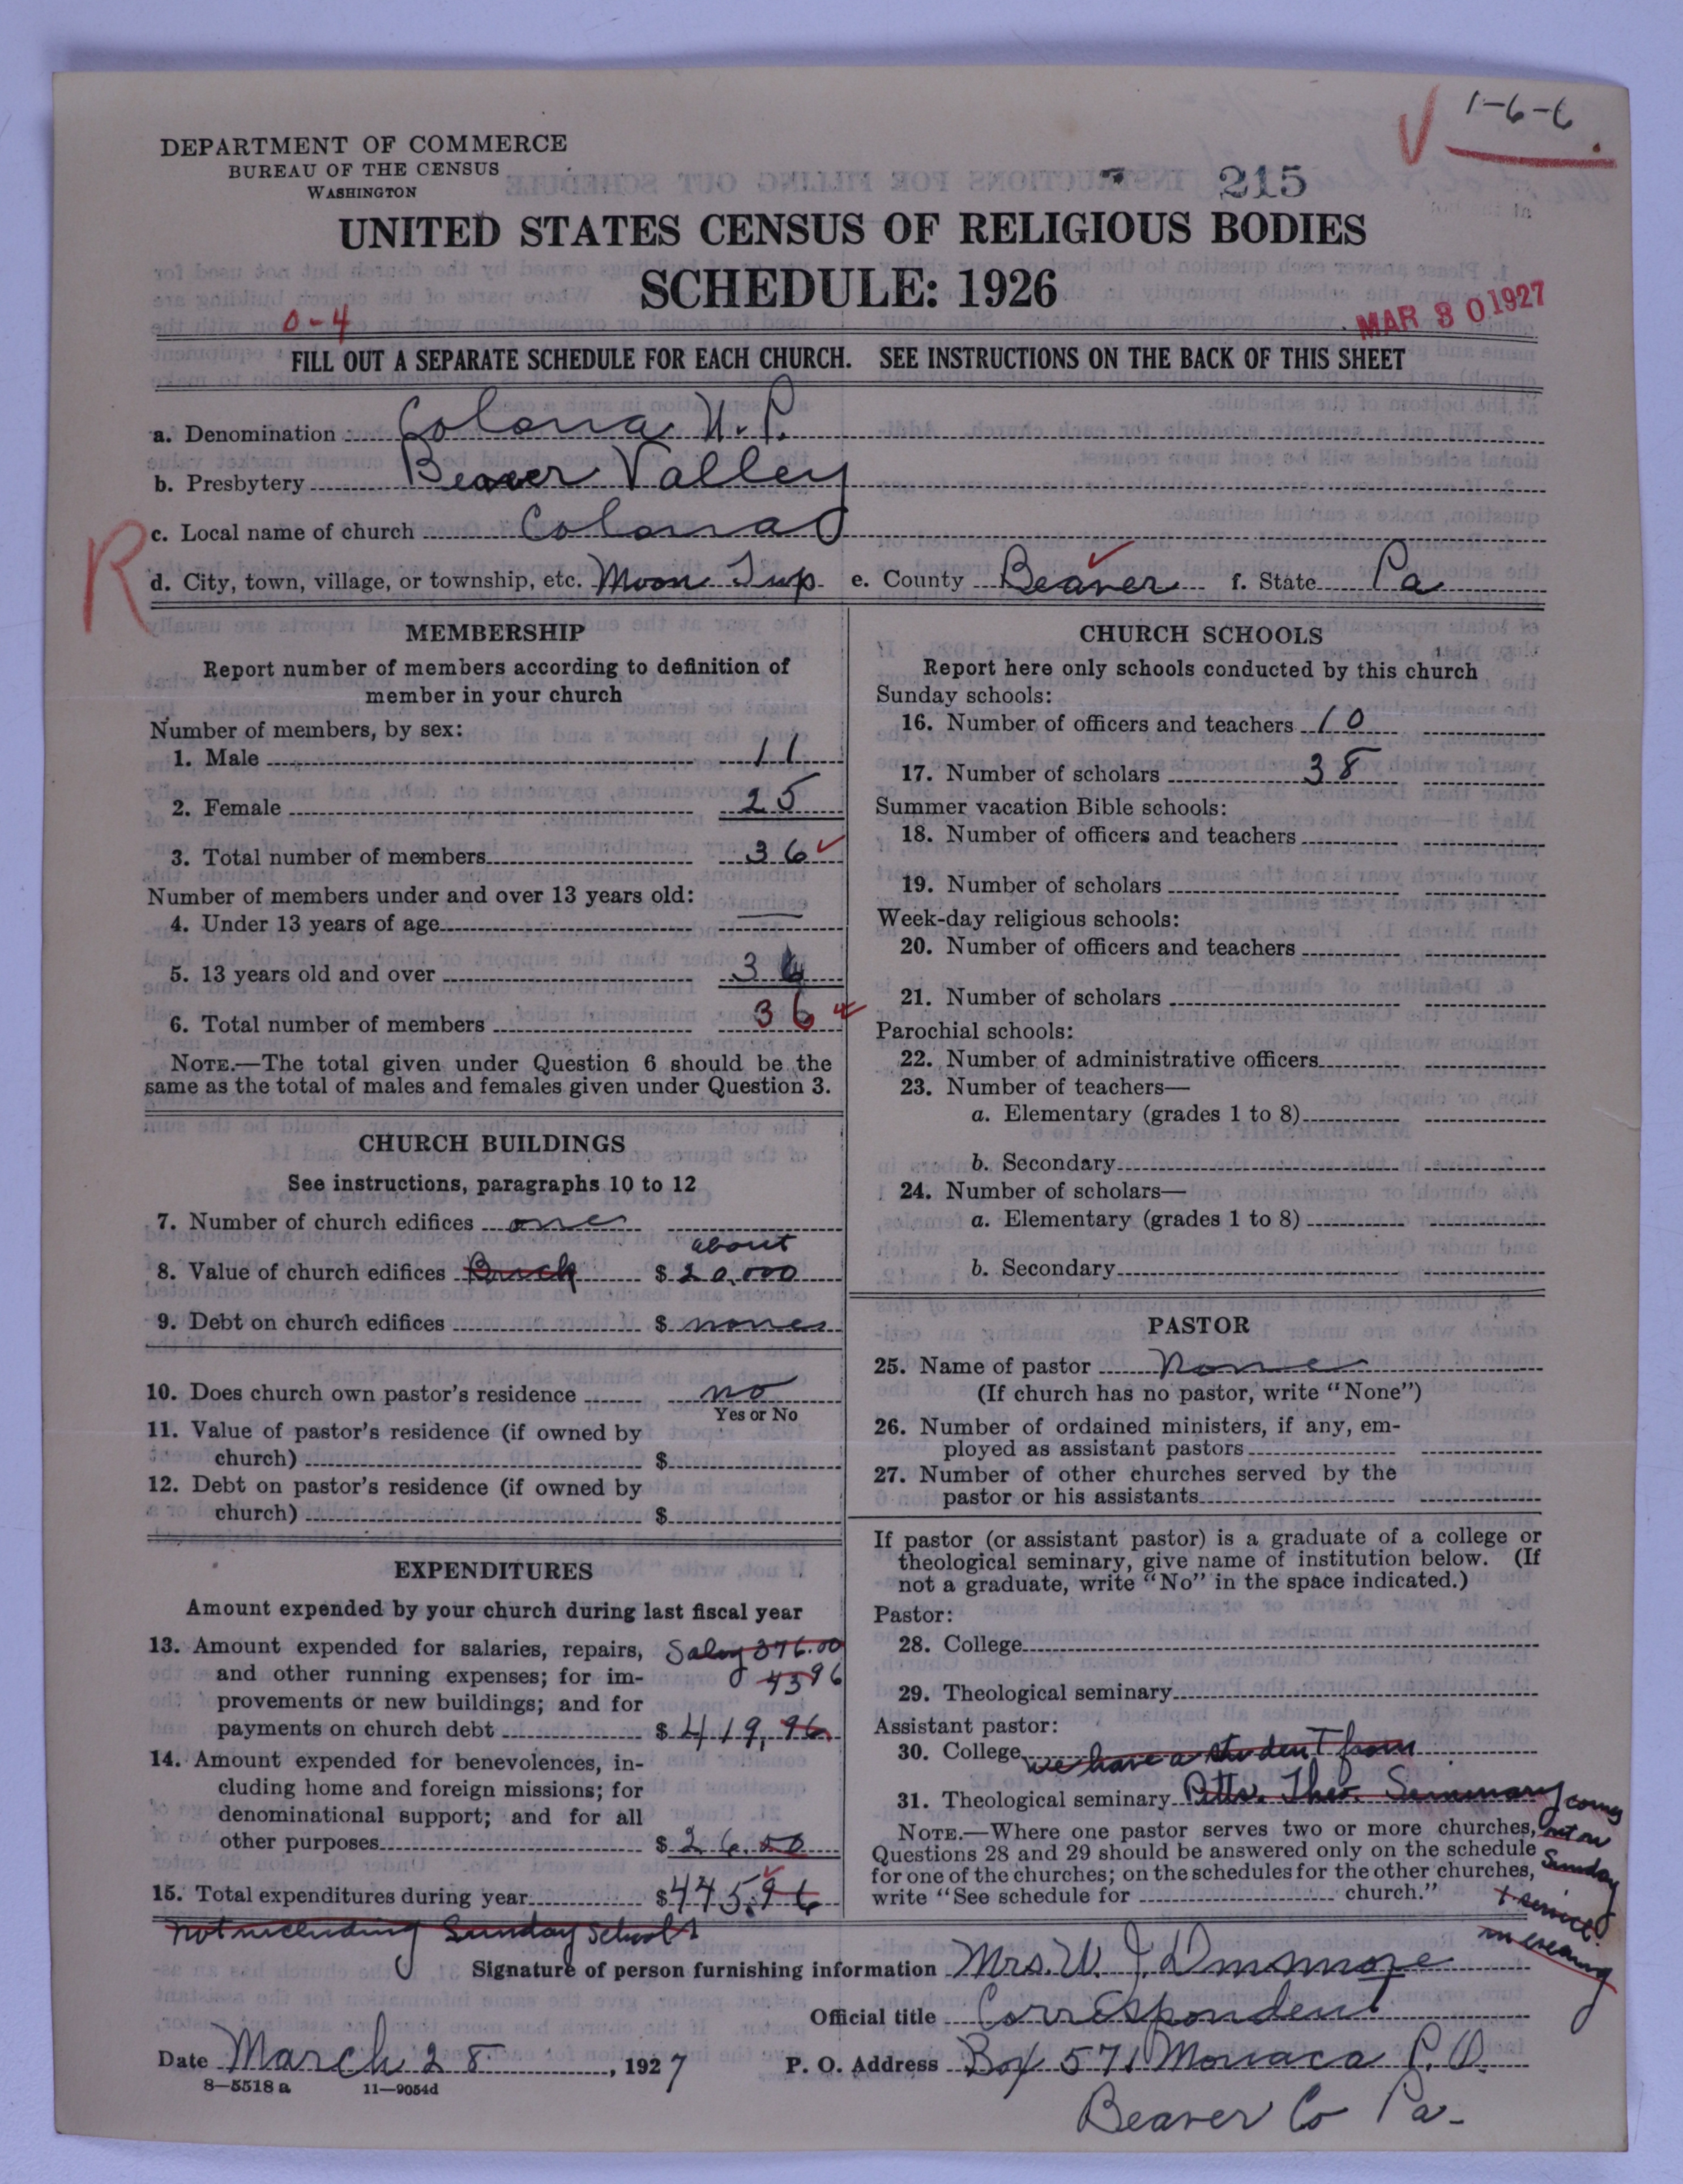 1-6-6
DEPARTMENT OF COMMERCE
BUREAU OF THE CENSUS
WASHINGTON
215
UNITED STATES CENSUS OF RELIGIOUS BODIES
SCHEDULE: 1926
0-4
MAR 30 1927
FILL OUT A SEPARATE SCHEDULE FOR EACH CHURCH. SEE INSTRUCTIONS ON THE BACK OF THIS SHEET
a. Denomination Colona U.P.
b. Presbytery Beaver Valley
c. Local name of church Colona
R
d. City, town, village, or township, etc. Moon Twp. e. County Beaver f. State Pa
MEMBERSHIP
Report number of members according to definition of
member in your church
Number of members, by sex:
1. Male 11
2. Female 25
3. Total number of members 36
Number of members under and over 13 years old:
4. Under 13 years of age
5. 13 years old and over 36
6. Total number of members 36
NOTE.—The total given under Question 6 should be the
same as the total of males and females given under Question 3.
CHURCH BUILDINGS
See instructions, paragraphs 10 to 12
7. Number of church edifices one
about
8. Value of church edifices Brick $ 20,000
9. Debt on church edifices $ none
10. Does church own pastor's residence no
Yes or No
11. Value of pastor's residence (if owned by
church) $
12. Debt on pastor's residence (if owned by
church) $
EXPENDITURES
Amount expended by your church during last fiscal year
13. Amount expended for salaries, repairs, Salary 376.00
and other running expenses; for im- 43 96
provements or new buildings; and for
payments on church debt $ 419,96
14. Amount expended for benevolences, in-
cluding home and foreign missions; for
denominational support; and for all
other purposes $ 26.00
15. Total expenditures during year $445.96
not including Sunday School
CHURCH SCHOOLS
Report here only schools conducted by this church
Sunday schools:
16. Number of officers and teachers 10
17. Number of scholars 38
Summer vacation Bible schools:
18. Number of officers and teachers
19. Number of scholars
Week-day religious schools:
20. Number of officers and teachers
21. Number of scholars
Parochial schools:
22. Number of administrative officers
23. Number of teachers—
a. Elementary (grades 1 to 8)
b. Secondary
24. Number of scholars—
a. Elementary (grades 1 to 8)
b. Secondary
PASTOR
25. Name of pastor None
(If church has no pastor, write "None")
26. Number of ordained ministers, if any, em-
ployed as assistant pastors
27. Number of other churches served by the
pastor or his assistants
If pastor (or assistant pastor) is a graduate of a college or
theological seminary, give name of institution below. (If
not a graduate, write "No" in the space indicated.)
Pastor:
28. College
29. Theological seminary
Assistant pastor:
30. College we have a student from
31. Theological seminary Pitts. Theo. Seminary comes
NOTE.—Where one pastor serves two or more churches, out on
Questions 28 and 29 should be answered only on the schedule Sunday
for one of the churches; on the schedules for the other churches,
write "See schedule for church." + service
in evening
Signature of person furnishing information Mrs. W. J. Dinsmore
Official title Correspondent
Date March 28, 1927 P. O. Address Box 571 Monaca P.O.
8—5518 a 11—9054d
Beaver Co Pa-